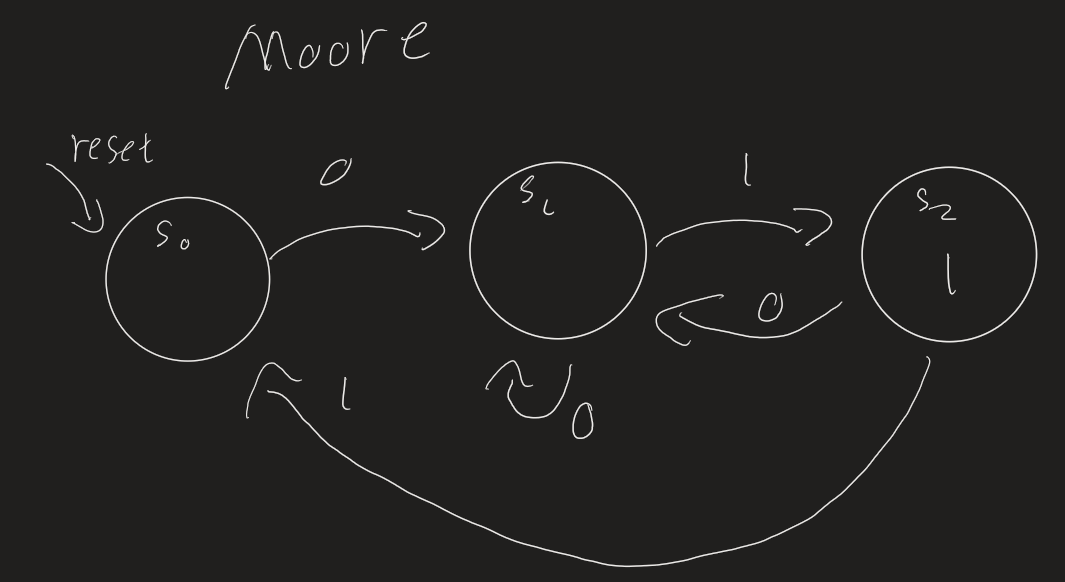 Moore
reset
0
1
S0
S1
S2
1
0
1
0